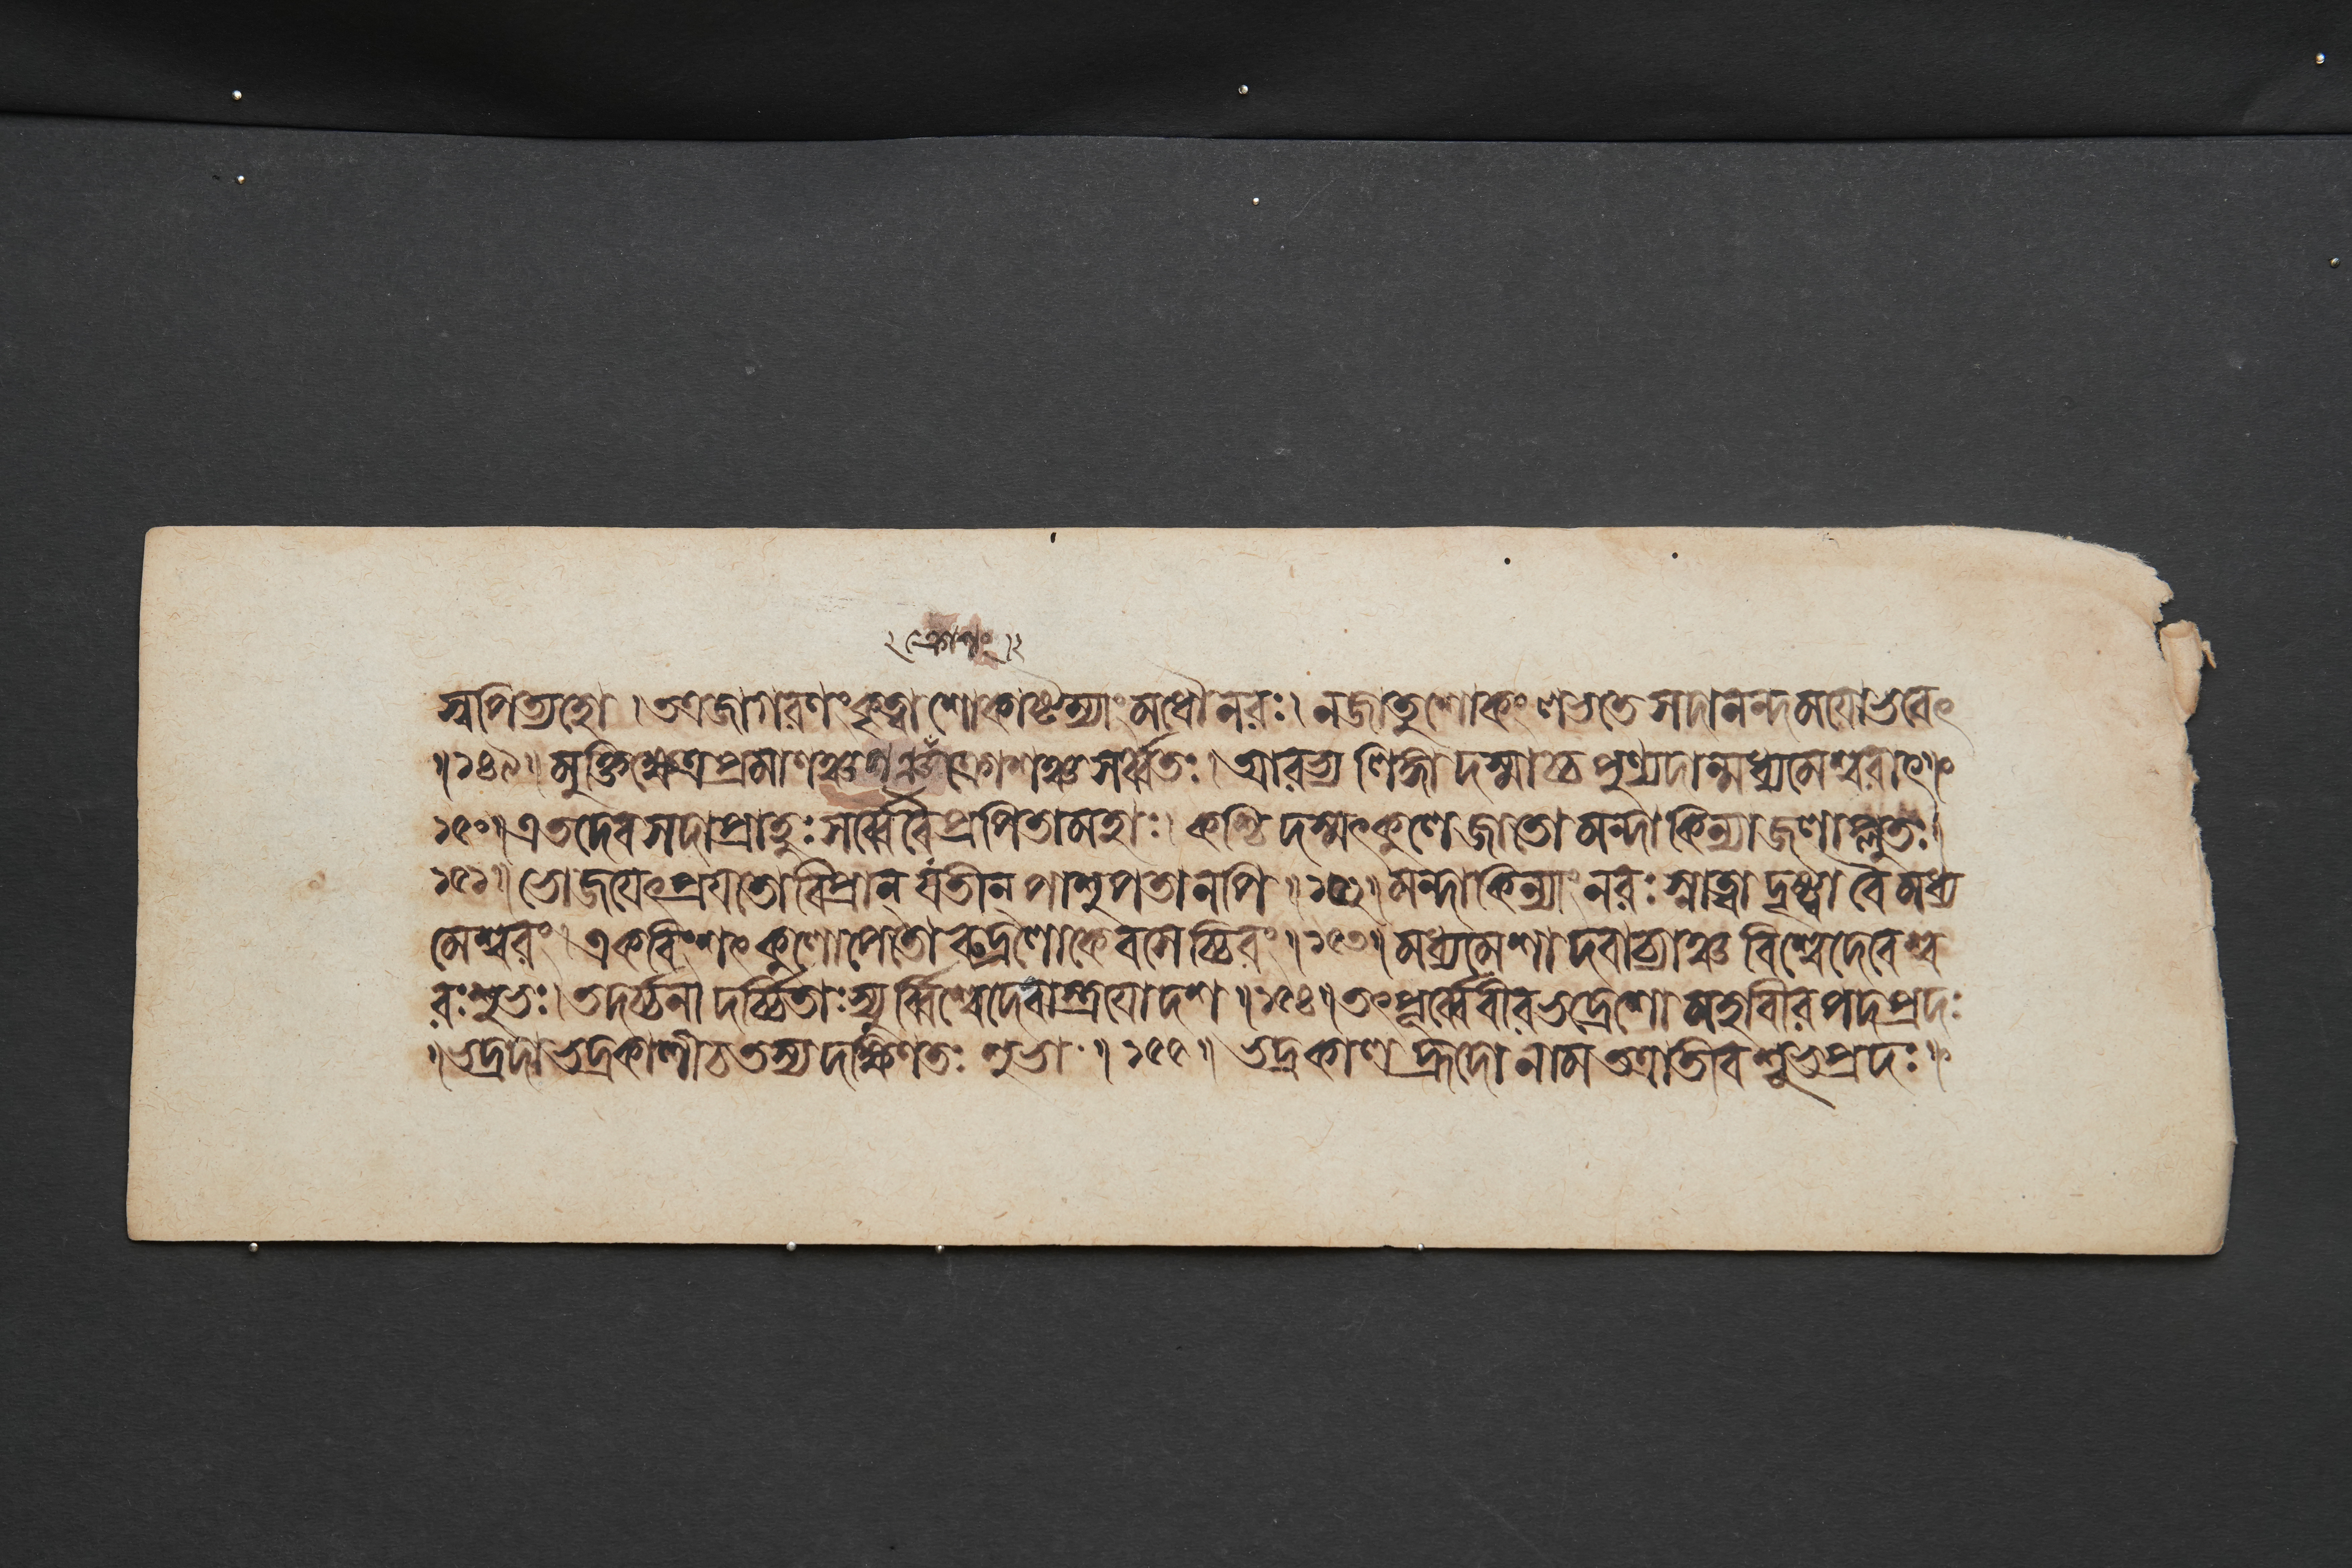 ক্রোশং
স্বপিত্যহো । তত্রজাগরণংকৃত্বাশোকাষ্টম্যাংমধৌনরঃ। নজাতুশোকংলভতেসদানন্দময়োভবেৎ
॥১৪৯॥ মুক্তিক্ষেত্রপ্রমাণঞ্চ ক্রোশঞ্চসর্ব্বতঃ। আরভ্যলিঙ্গাদস্মাচ্চপুণ্যদান্মধ্যমেশ্বরাৎ॥
১৫০॥ এতদেবসদাপ্রাহুঃসর্ব্বেবৈপ্রপিতামহাঃ। কশ্চিদস্মৎকুলেজাতোমন্দাকিন্যাজলাপ্লুতঃ।
১৫১॥ ভোজয়েৎপ্রযতোবিপ্রান্ যতীন্ পাশুপতানপি ॥১৫২॥ মন্দাকিন্যাংনরঃস্নাত্বাদৃষ্ট্বাবৈমধ্য
মেশ্বরং। একবিংশৎকুলোপেতোরুদ্রলোকেবসেচ্চিরং॥১৫৩॥ মধ্যমেশাদবাচ্যাঞ্চবিশ্বেদেবেশ্ব
রঃশুভঃ। তদর্চ্চনাদর্চ্চিতাঃস্যুর্ব্বিশ্বেদেবাস্ত্রয়োদশ ॥১৫৪॥ তৎপূর্ব্বেবীরভদ্রেশোমহাবীরপদপ্রদঃ
॥ভদ্রদাভদ্রকালীচতস্যদক্ষিণতঃ শুভা ॥ ১৫৫॥ ভদ্রকালহ্রদোনামতত্রাতিবশুভপ্রদঃ॥